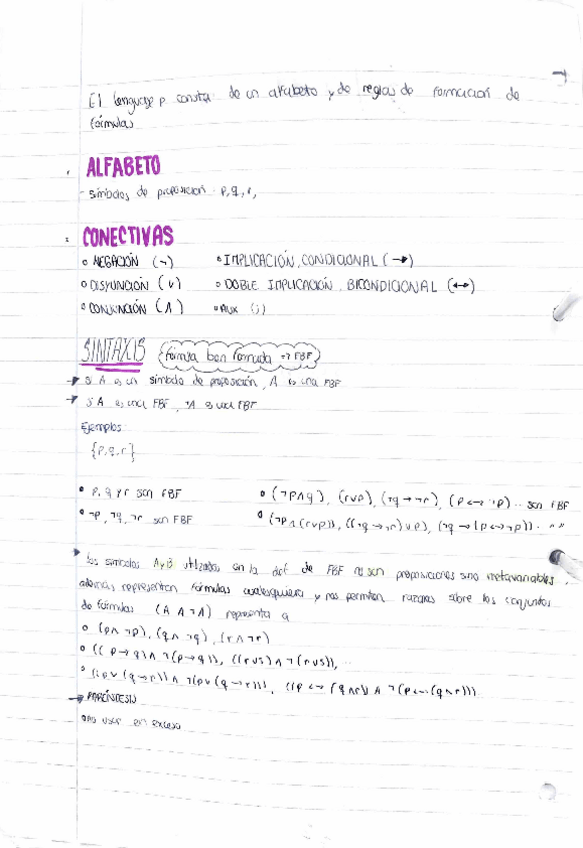 El lenguaje p consta de un alfabeto y de reglas de formación de
fórmulas
ALFABETO
- símbolos de proposición p, q, r,
CONECTIVAS
• NEGACIÓN (¬) • IMPLICACIÓN, CONDICIONAL (→)
• DISYUNCIÓN (∨) • DOBLE IMPLICACIÓN, BICONDICIONAL (↔)
• CONJUNCIÓN (∧) • AUX
SINTAXIS (fórmula bien formada → FBF)
→ si A es un símbolo de proposición, A es una FBF
→ si A es una FBF, ¬A es una FBF
Ejemplos
{p, q, r}
• p, q y r son FBF • (¬p∧q), (r∨p), (¬q → ¬r), (p ↔ ¬p).. son FBF
• ¬p, ¬q, ¬r son FBF • (¬p∧(r∨p)), ((¬q → ¬r)∨p), (¬q → (p ↔ ¬p)).. " "
▸ los símbolos A y B utilizados en la def de FBF no son proposiciones sino metavariables,
además representan fórmulas cualesquiera y nos permiten razonar sobre los conjuntos
de fórmulas (A ∧ ¬A) representa a
• (p∧ ¬p), (q∧ ¬q), (r∧¬r)
• ((p → q)∧ ¬(p→q)), ((r∨s)∧¬(r∨s)),..
• ((p∨(q→r))∧¬(p∨(q→r))), ((p ↔ (q∧r)) ∧ ¬(p↔(q∧r)))
→ PARÉNTESIS
• no usar en exceso